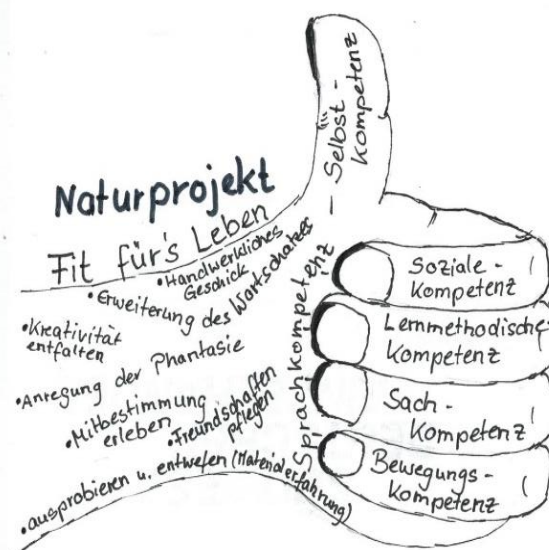 Naturprojekt
Fit für's Leben
• Handwerkliches
Geschick
• Erweiterung des Wortschatzes
• Kreativität
entfalten
• Anregung der Phantasie
• Mitbestimmung
erleben
• Freundschaften
pflegen
• ausprobieren u. entwefen (Materialerfahrung)
Sprachkompetenz
- Selbst -
Kompetenz
Soziale -
Kompetenz
Lernmethodische
Kompetenz
Sach -
Kompetenz
Bewegungs -
Kompetenz